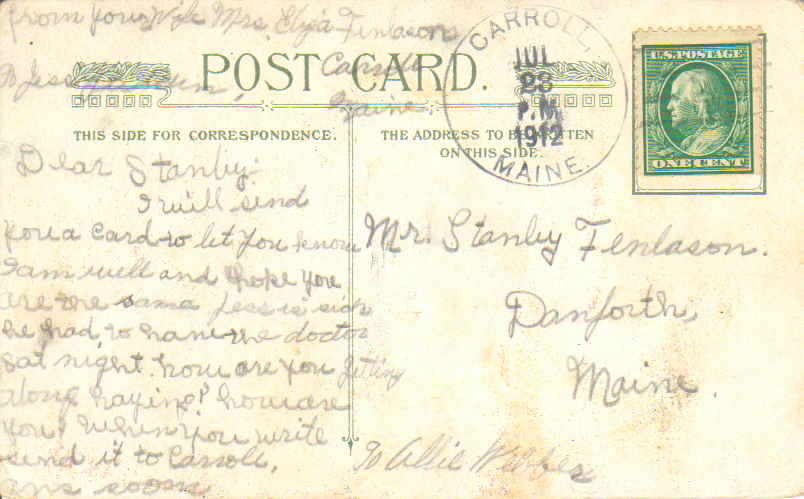 from your Wife Mrs. Eliza Fenlason
Carroll
Maine.
To Jess
POST CARD.
CARROLL,
JUL
28
P.M.
1912
MAINE.
U.S. POSTAGE
ONE CENT
THIS SIDE FOR CORRESPONDENCE.
THE ADDRESS TO BE WRITTEN
ON THIS SIDE.
Dear Stanby.
I will send
you a Card to let you know
I am well and hope you
are the sama Jess is sick
he had to have the doctor
Sat night. how are you getting
along haying? how are
you? When you write
send it to Carroll.
ans soon
Mr. Stanby Fenlason.
Danforth,
Maine.
To Allie Webber